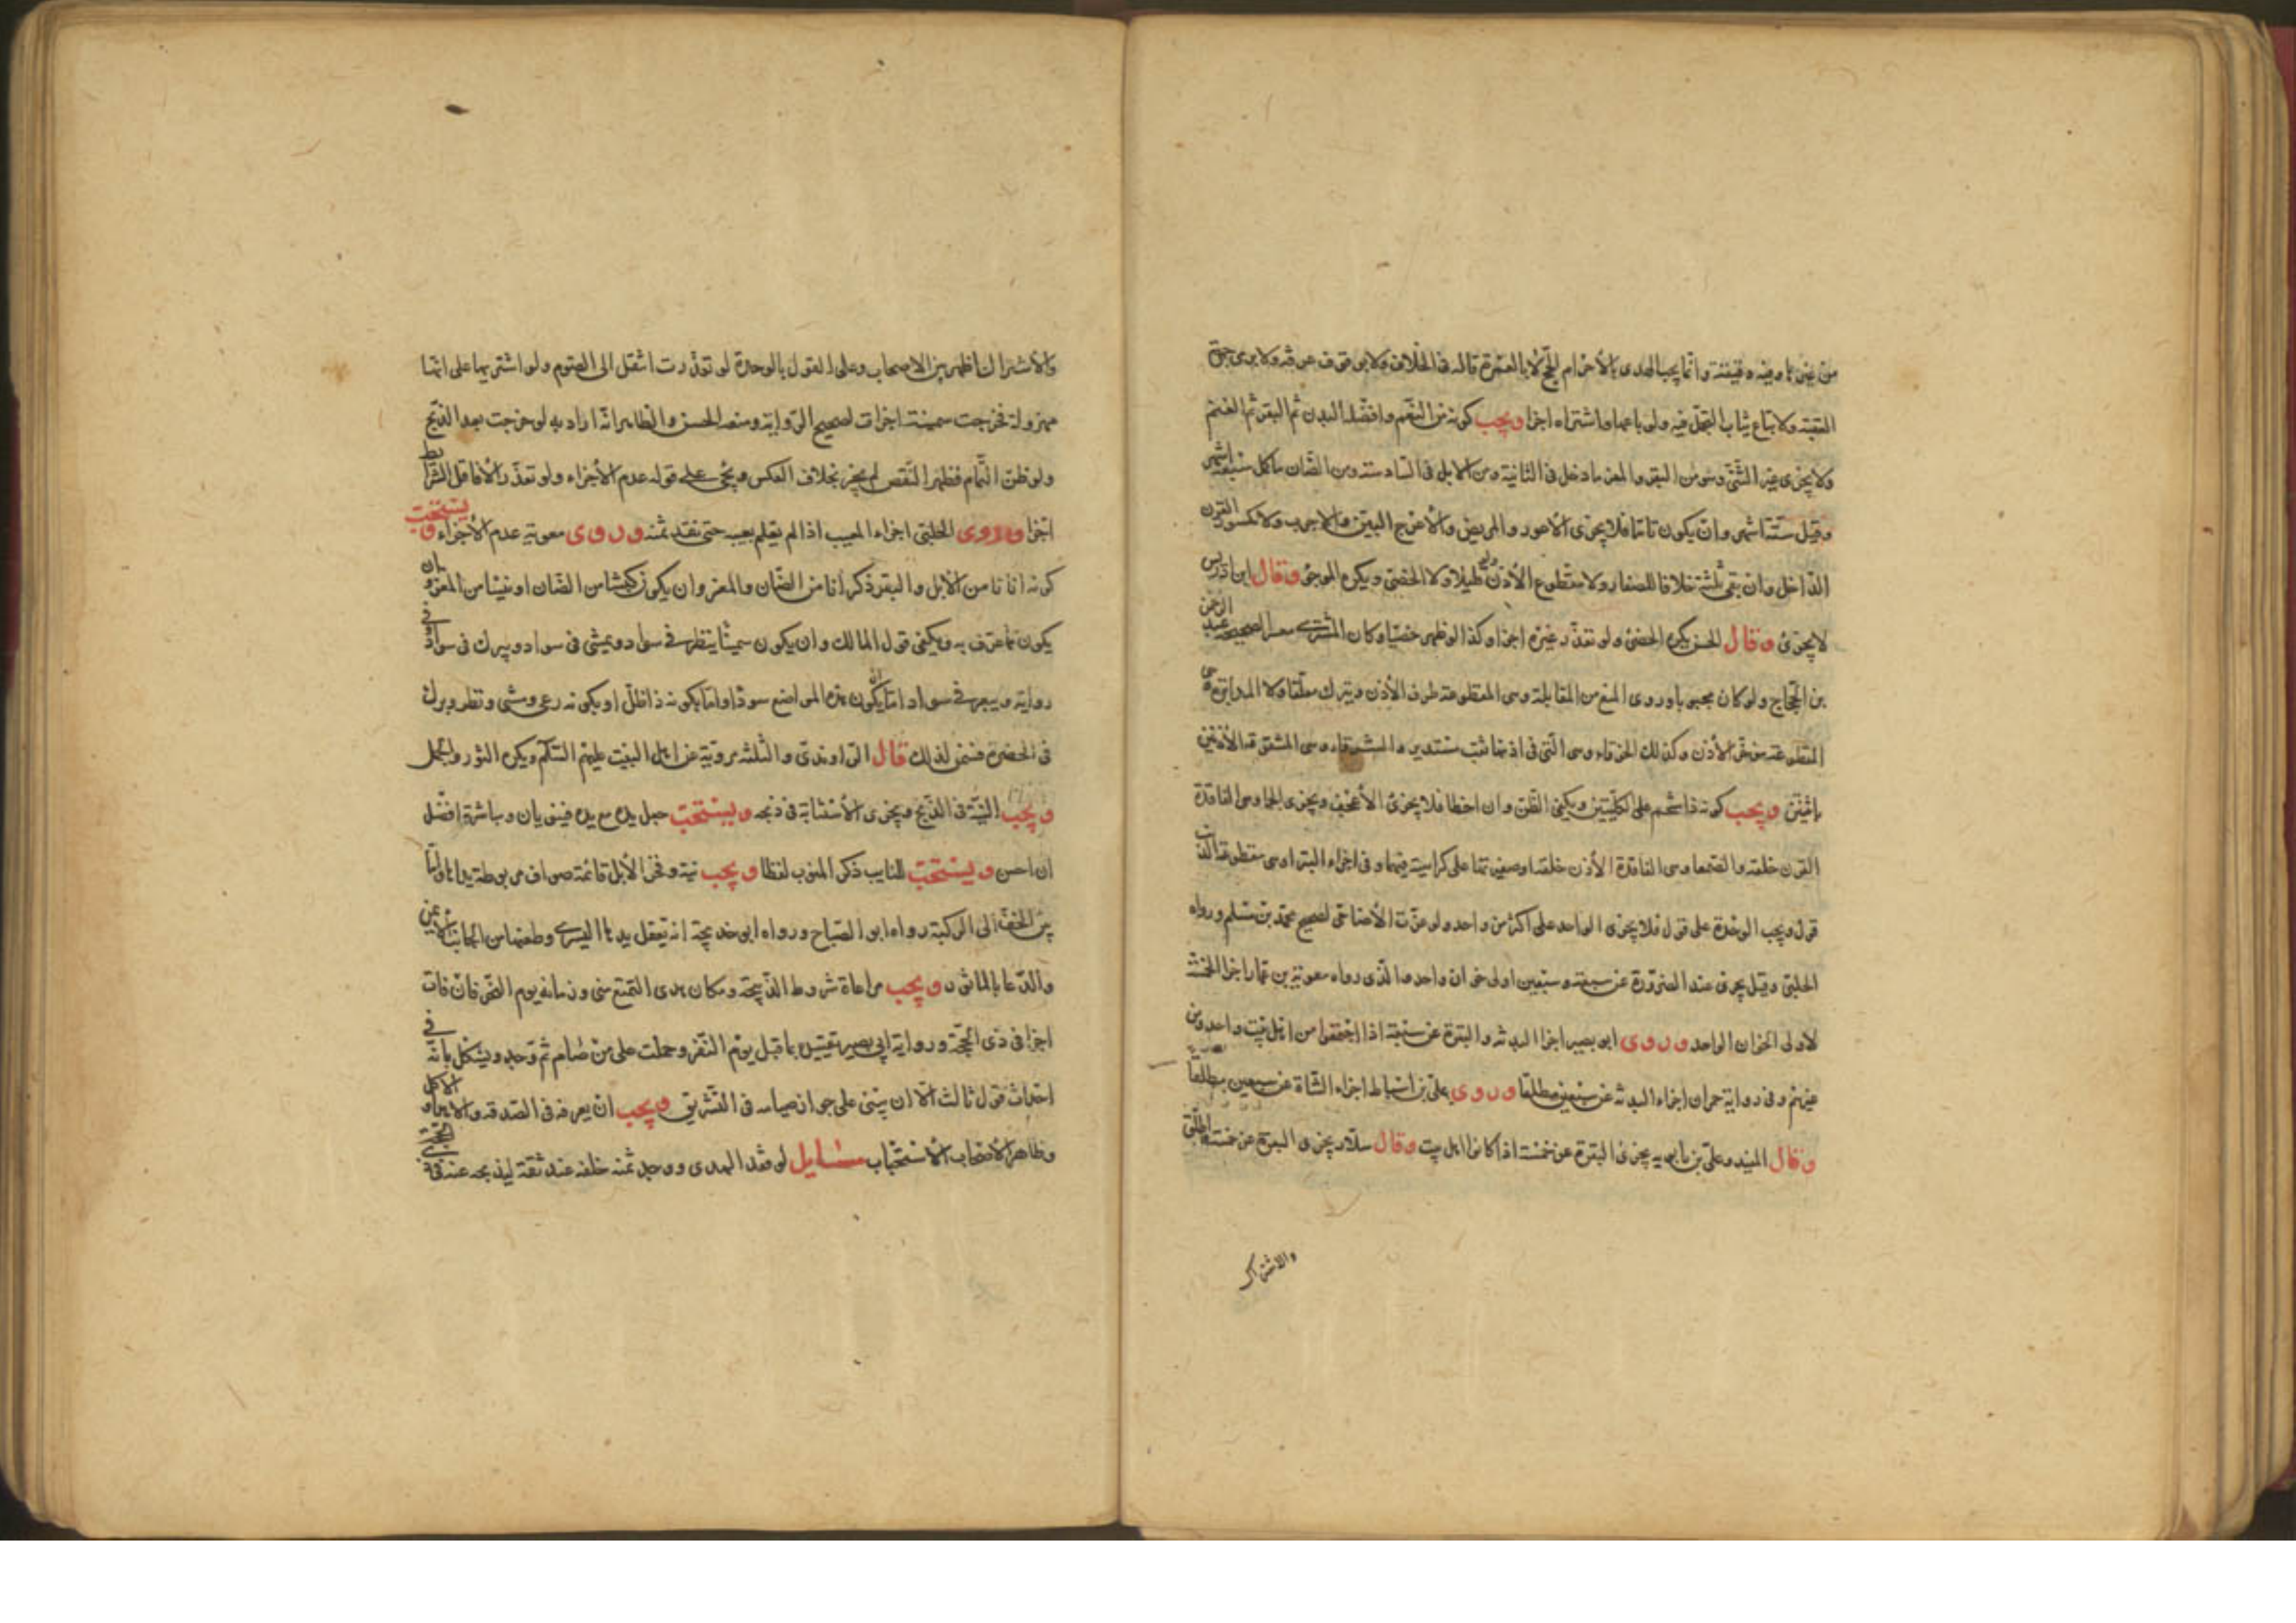 من نهى ما وفيه دقيقة وانما يجب الهدى بالاحرام للحج لا بالعمرة قاله فى الخلاف ولا بوقوف عرفة ولا برمى جمرة
العقبة ولا تباع ثياب التجمل فيه ولو باعها واشتراه اجزا ويجب كونه من النعم وافضلها البدن ثم البقر ثم الغنم
ولا يجزى غير الثنى وهو من البقر والمعز ما دخل فى الثانية ومن الابل فى السادسة ومن الضان ما كمل سبعة اشهر
وقيل ستة اشهر وان يكون تاما فلا يجزى الاعور والمريض والاعرج البين والاجرب ولا مكسور القرن
الداخل وان بقى ثلثه خلافا للصفار ولا مقطوع الاذن ولو قليلا ولا الخصى ويكره الموجؤ وقال ابن ادريس
لا يجزئ وقال الحسن يكره الخصى ولو تعذر غيره اجزا وكذا لو ظهر خصيا وكان المشترى معسرا لصحيحة عبد الرحمن
بن الحجاج ولو كان مجبوبا وروى المنع من المقابلة وهى المقطوعة طرف الاذن ويترك معلقا ولا المدابرة هى
المقطوعة مؤخر الاذن وكذلك الخرقاء وهى التى فى اذنها ثقب مستدير والشرقاء وهى المشقوقة الاذنين
باثنتين ويجب كونه ذا شحم على الكليتين ويكفى الظن وان اخطا فلا يجزئ الاعجف ويجزى الجما وهى الفاقدة
القرن خلقة والصمعا وهى الفاقدة الاذن خلقة او صغيرتها على كراهية فيهما وفى اجزاء البترا وهى مقطوعة الذنب
قول ويجب الوحدة على قول فلا يجزى الواحد على اكثر من واحد ولو عزت الاضاحى لصحيح محمد بن مسلم ورواه
الحلبى وقيل يجزى عند الضرورة عن سبعة وسبعين اولى خوان واحد والذى رواه معوية بن عمار اجزا الخمسة
لاولى الخوان الواحد وروى ابو بصير اجزا البدنة والبقرة عن سبعة اذا اجتمعوا من اهل بيت واحد ومن
غيرهم وفى رواية حمران اجزاء البدنة عن سبعين مطلقا وروى على بن اسباط اجزاء الشاة عن سبعين مطلقا
وقال المفيد وعلى بن بابويه يجزئ البقرة عن خمسة اذا كانوا اهل بيت وقال سلار يجزى البقرة عن خمسة واطلق
والاشتراك
والاشتراك اظهر بين الاصحاب وعلى القول بالوحدة لو تعذرت انتقل الى الصوم ولو اشتريها على انها
مهزولة فخرجت سمينة اجزات لصحيح الرواية ومنعه الحسن والظاهر انه اراد به لو خرجت بعد الذبح
ولو ظن التمام فظهر النقص لم يجز بخلاف العكس ويجئ على قوله عدم الاجزاء ولو تعذر الا فاقد الشرايط
اجزا وروى الحلبى اجزاء المعيب اذا لم يعلم بعيبه حتى نقد ثمنه وروى معوية عدم الاجزاء ويستحب
كونه اناثا من الابل والبقر ذكرانا من الضان والمعز وان يكون كبشا من الضان او تيسا من المعز وان
يكون مما عرف به ويكفى قول المالك وان يكون سمينا ينظر فى سواد ويمشى فى سواد ويبرك فى سواد وفى
رواية ويبعر فى سواد اما بكون هذه المواضع سودا واما بكونه ذا ظل او بكونه رعى ومشى ونظر وبرك
فى الخضرة فسمن لذلك قال الراوندى والثلثة مروية عن اهل البيت عليهم السلم ويكره الثور والجمل
ويجب النية فى الذبح ويجزى الاستنابة فى ذبحه ويستحب جعل يده مع يده فينويان ومباشرة افضل
ان احسن ويستحب للنايب ذكر المنوب لفظا ويجب نية ونحر الابل قائمة صواف مربوطة يداها ما
بين الخف الى الركبة رواه ابو الصباح ورواه ابو خديجة انه يعقل يدها اليسرى وطعنها من الجانب الايمن
والدعا بالماثور ويجب مراعاة شروط الذبيحة ومكان هدى التمتع منى وزمانه يوم النحر فان فات
اجزا فى ذى الحجة ورواية ابى بصير تقييده بما قبل يوم النفر وحملت على من صام ثم وجد ويشكل بانه فى
احداث قول ثالث الا ان يبنى على جواز صيامه فى التشريق ويجب ان يصرفه فى الصدقة والاهداء والاكل
وظاهر الاصحاب الاستحباب مسايل لو فقد الهدى ووجد ثمنه خلفه عند ثقة ليذبحه عنه فى